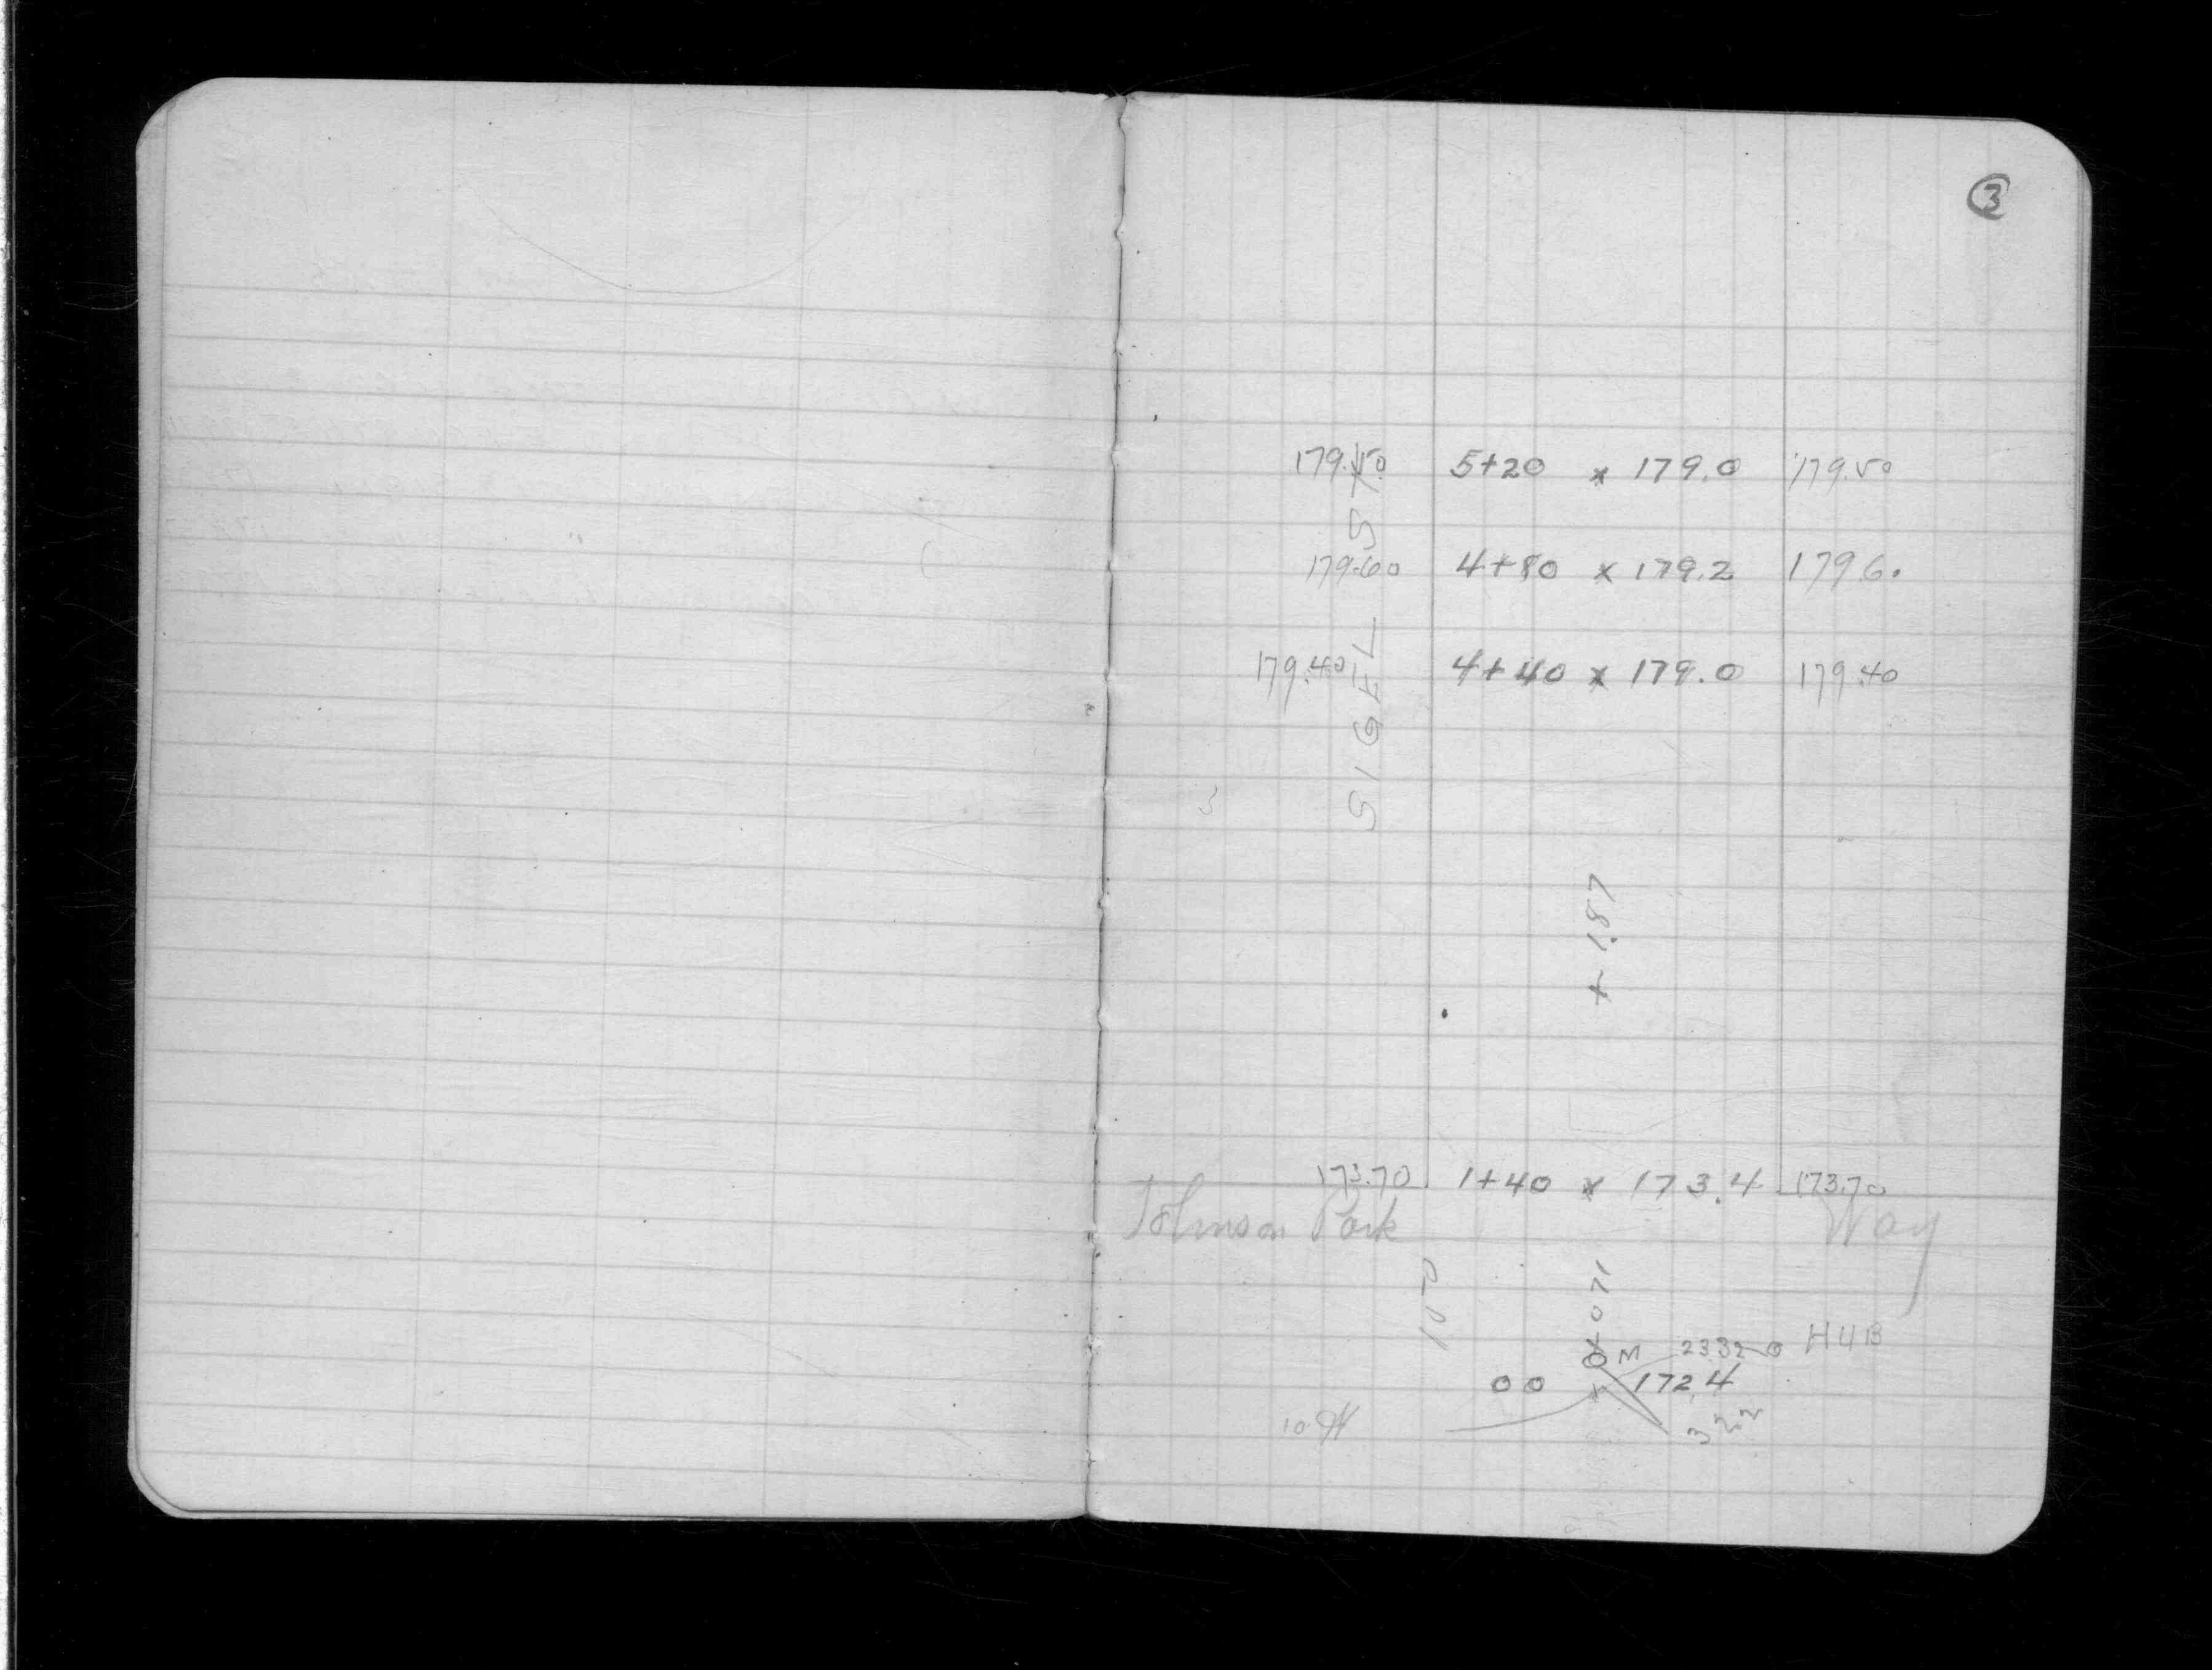 3
179.50 5+20 x 179.0 179.50
SIGEL ST.
179.60 4+80 x 179.2 179.60
179.40 4+40 x 179.0 179.40
+ 1.87
173.70 1+40 x 173.4 173.70
Johnson Park Way
+0.71
M 23.32 HUB
00 x 172.4
3.22